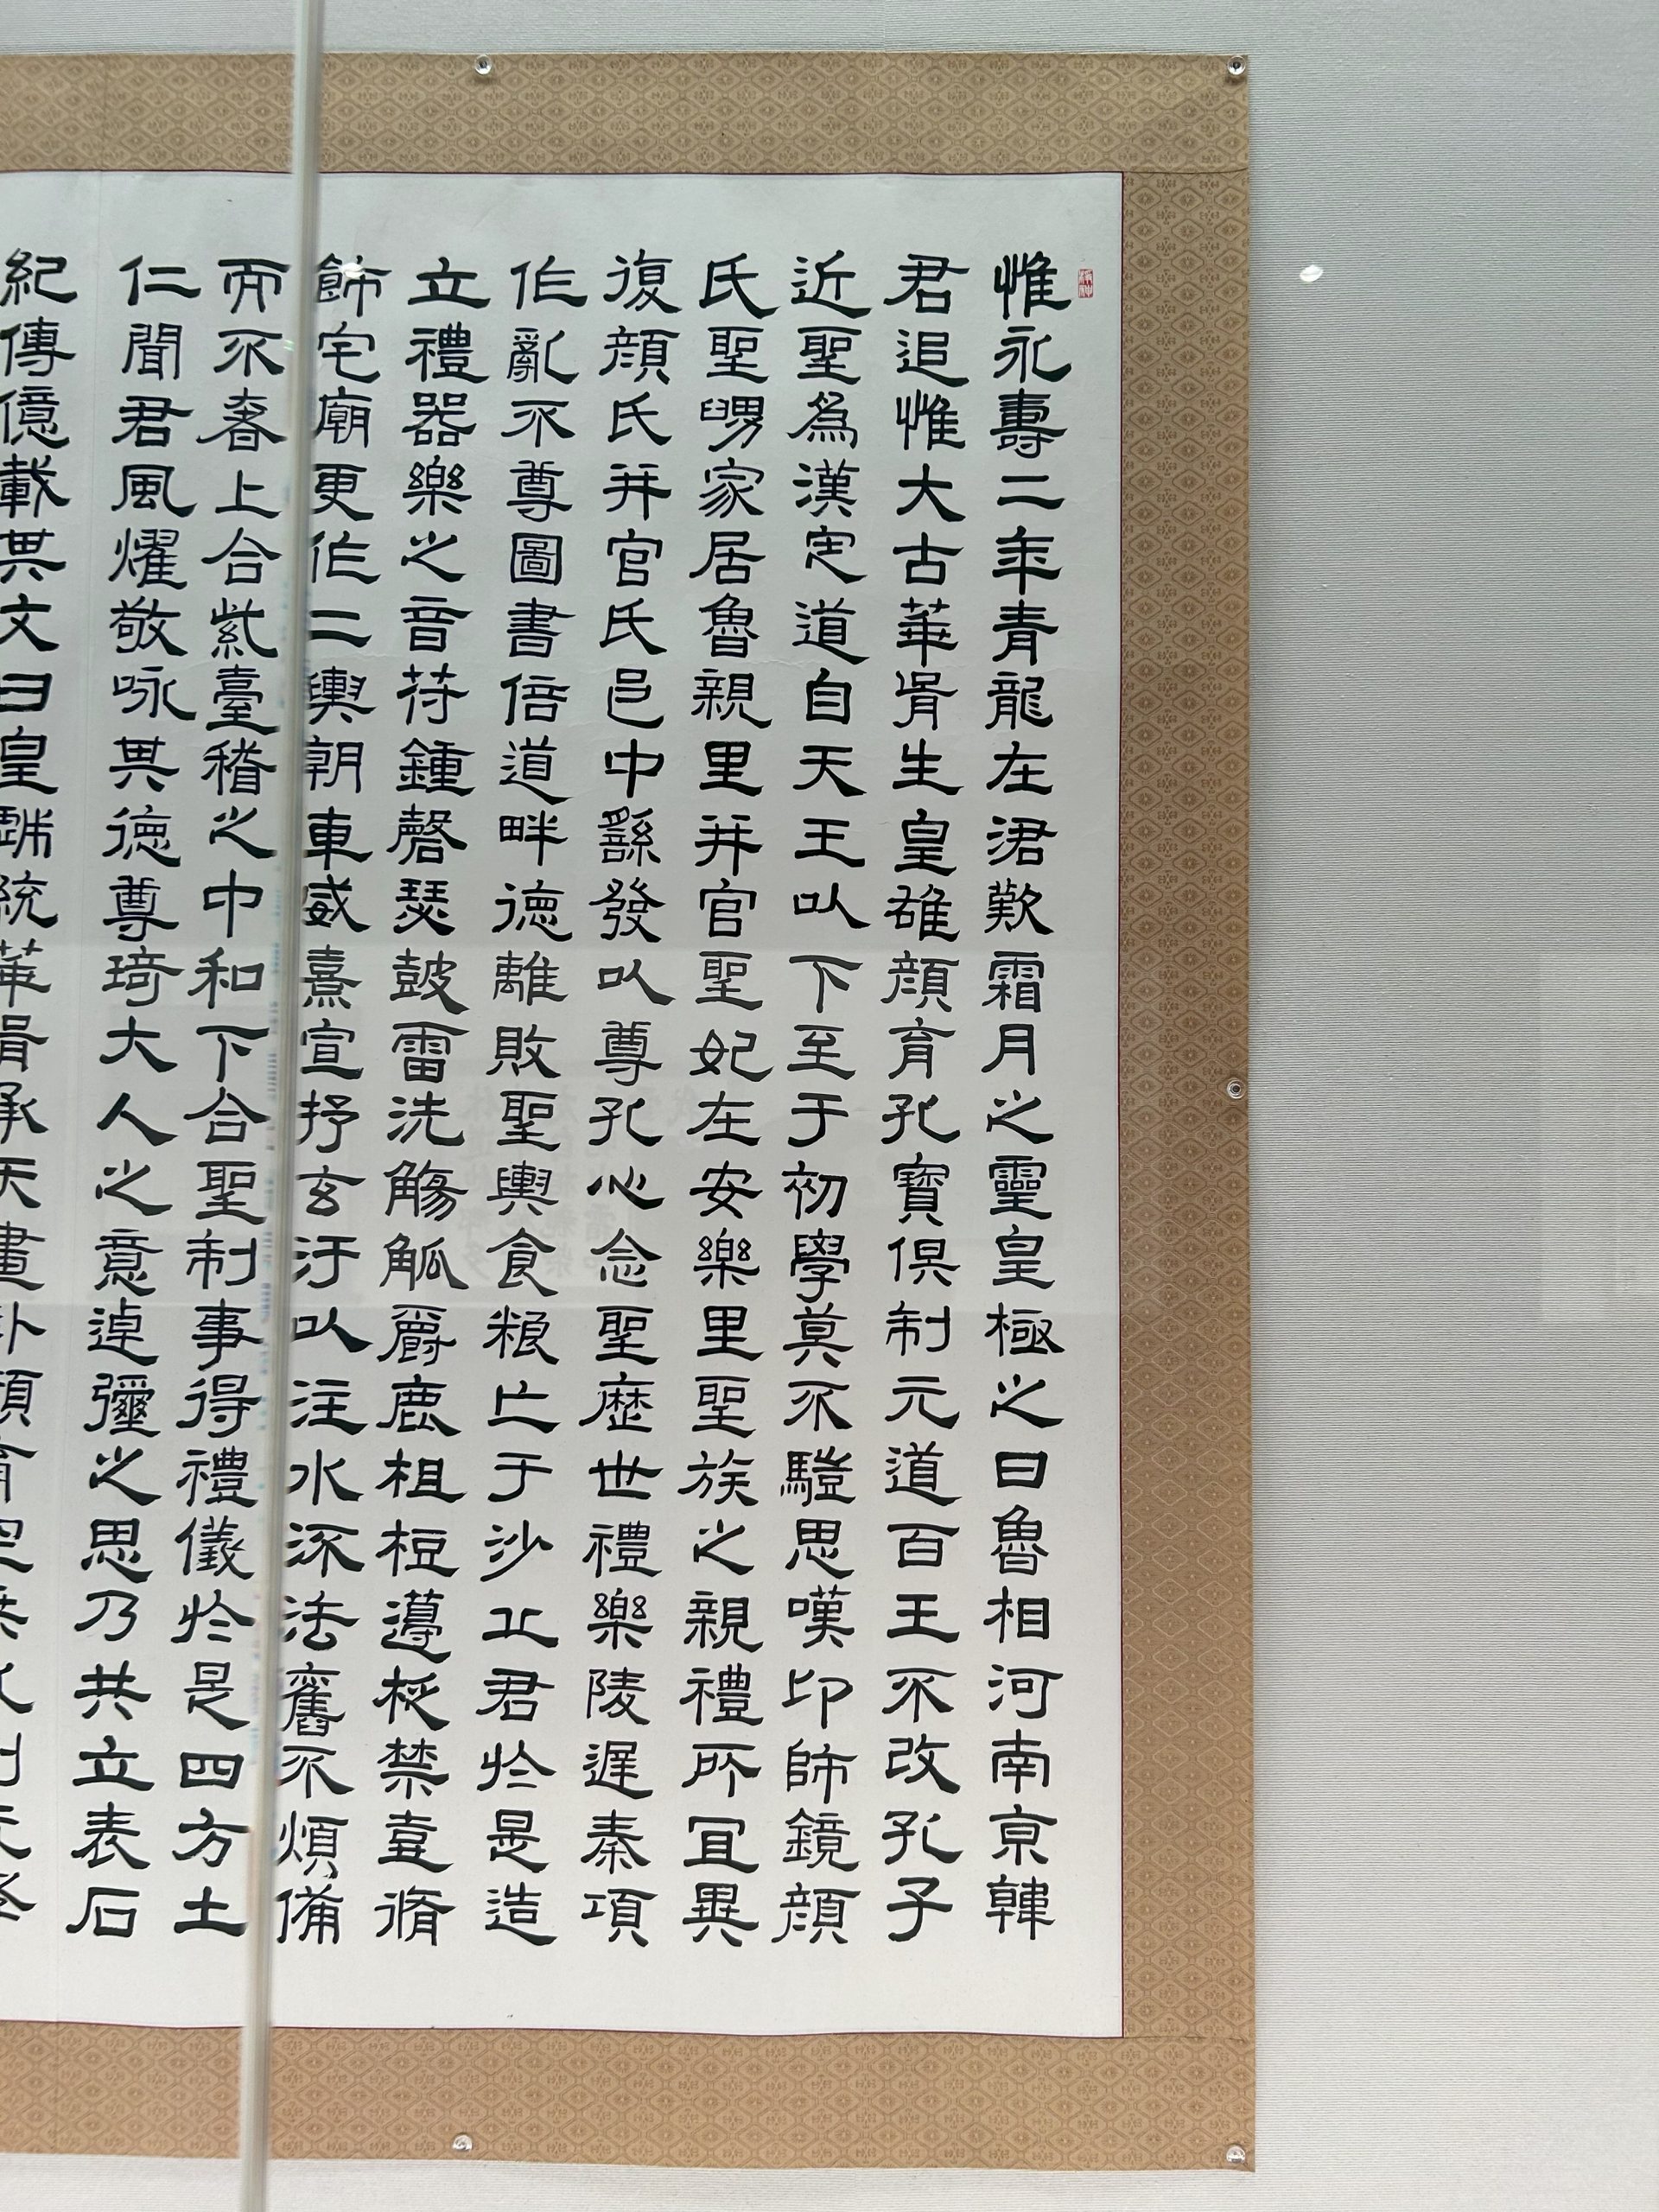 惟永壽二年青龍在涒歎霜月之靈皇極之日魯相河南京韓
君追惟大古華胥生皇雄顏育孔寶俱制元道百王不改孔子
近聖為漢定道自天王以下至于初學莫不驥思嘆卬師鏡顏
氏聖舅家居魯親里并官聖妃在安樂里聖族之親禮所宜異
復顏氏并官氏邑中繇發以尊孔心念聖歷世禮樂陵遲秦項
作亂不尊圖書倍道畔德離敗聖輿食粮亡于沙丘君於是造
立禮器樂之音苻鍾磬瑟鼓雷洗觴觚爵鹿柤梪籩柉禁壺脩
飾宅廟更作二輿朝車威熹宣抒玄汙以注水流法舊不煩備
而不奢上合紫臺稽之中和下合聖制事得禮儀於是四方土
仁聞君風燿敬咏其德尊琦大人之意逴彌之思乃共立表石
紀傳億載其文曰皇戲統華胥承天畫卦顏育